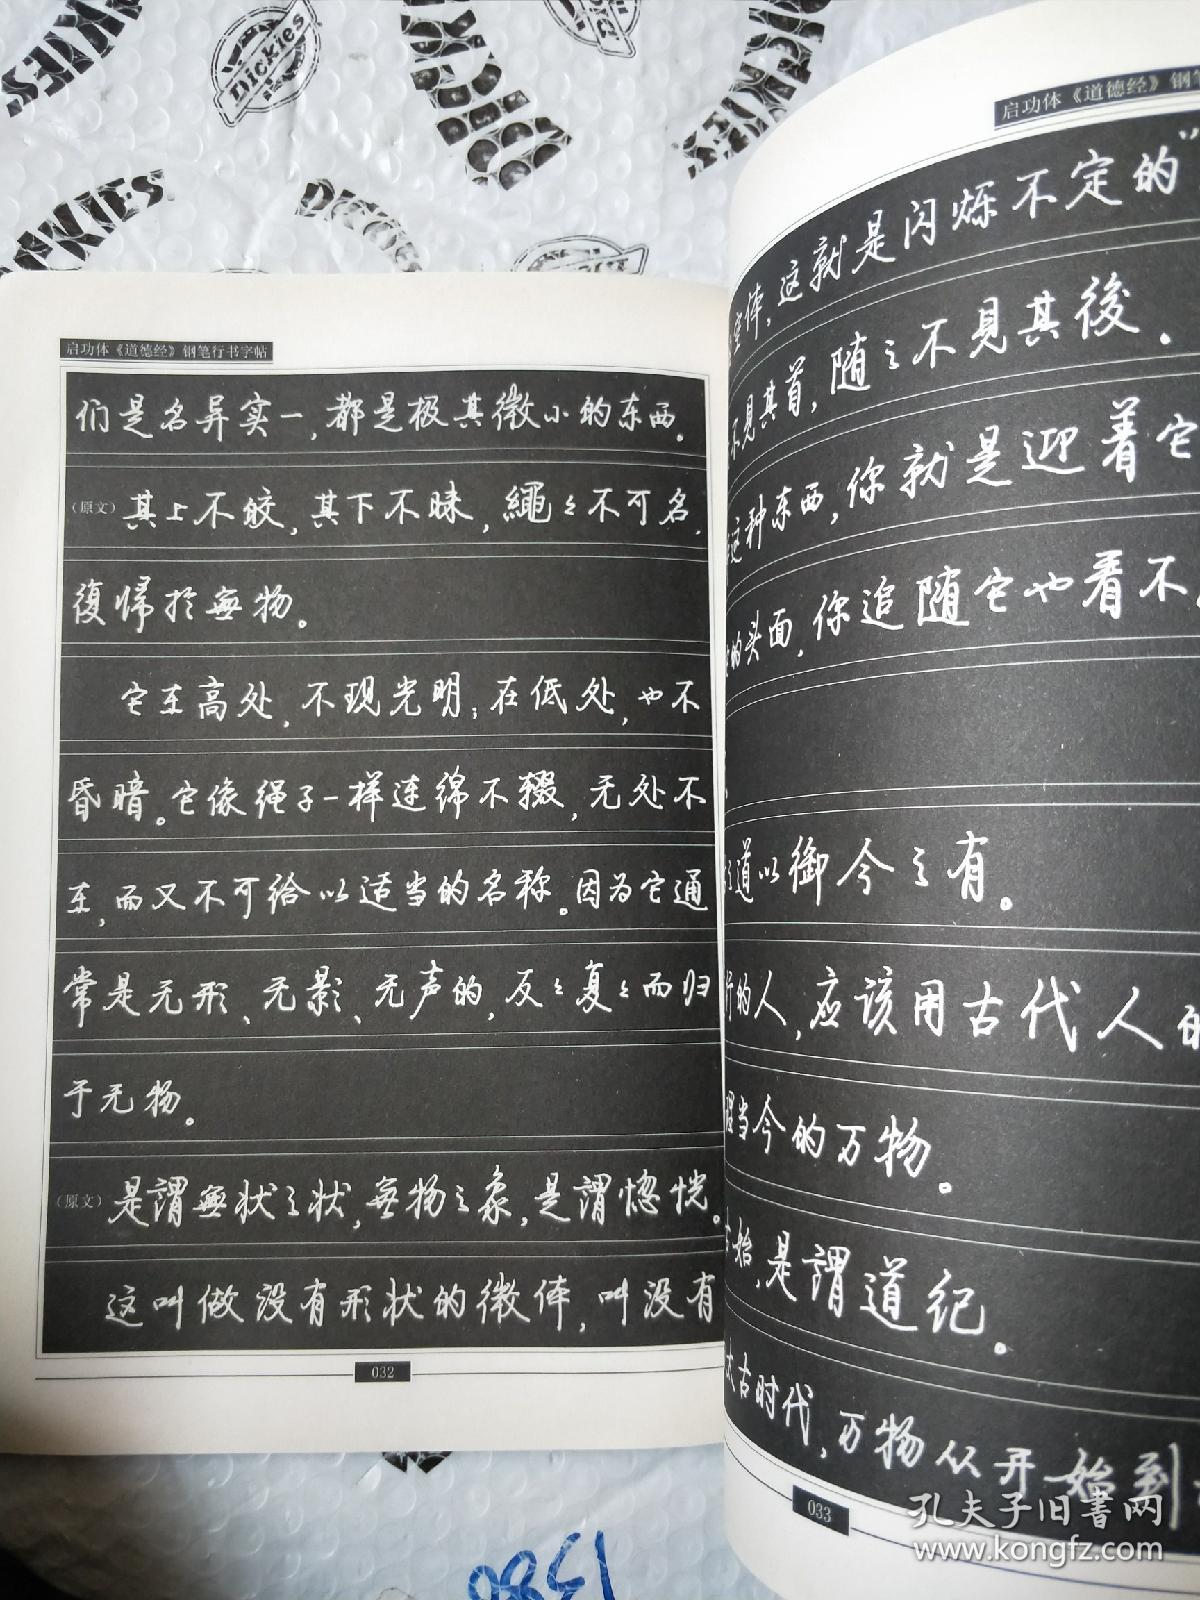 DICKIES
Dickies
DICKIES
启功体《道德经》钢笔行书字帖
们是名异实一,都是极其微小的东西。
(原文)其上不皎,其下不昧,繩々不可名,
復歸於無物。
它在高处,不现光明;在低处,也不
昏暗。它像绳子一样连绵不辍,无处不
在,而又不可给以适当的名称。因为它通
常是无形、无影、无声的,反々复々而归
于无物。
(原文)是謂無状之状,無物之象,是謂惚恍。
这叫做没有形状的微体,叫没有
032
启功体《道德经》钢
,这就是闪烁不定的“
不見其首,随之不見其後。
这种东西,你就是迎着它
的头面,你追随它也看不
道以御今之有。
的人,应该用古代人的
当今的万物。
始,是謂道纪。
太古时代,万物从开始到
033
孔夫子旧書网
www.kongfz.com
1386